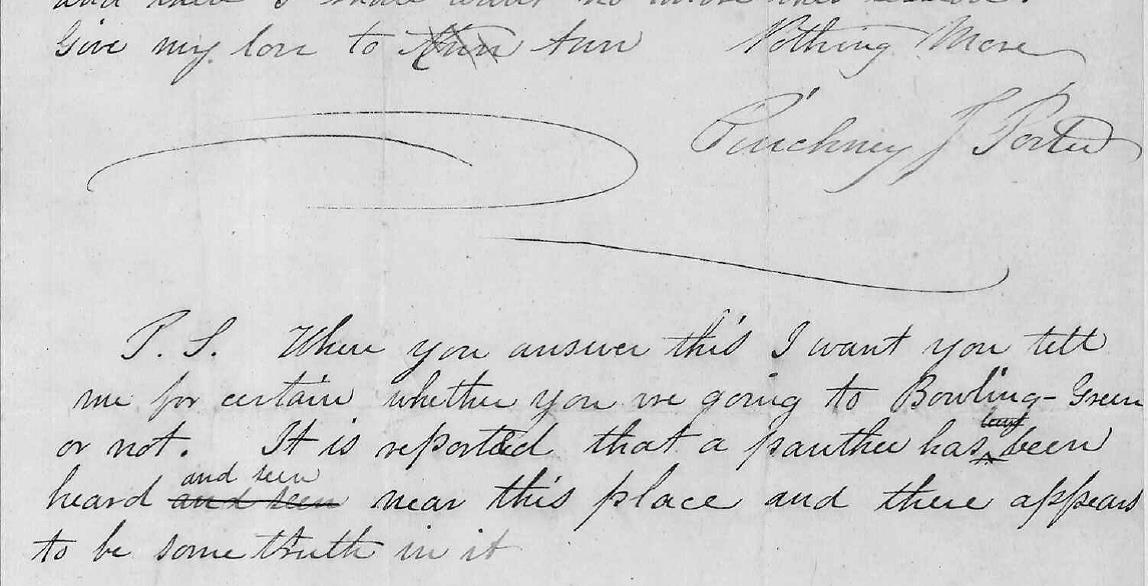 Give my love to Ann Ann Nothing More
Pinckney J Porter
P. S. When you answer this I want you tell
me for certain whether you are going to Bowling-Green
or not. It is reported that a panther has been
heard and seen and seen near this place and there appears
to be some truth in it